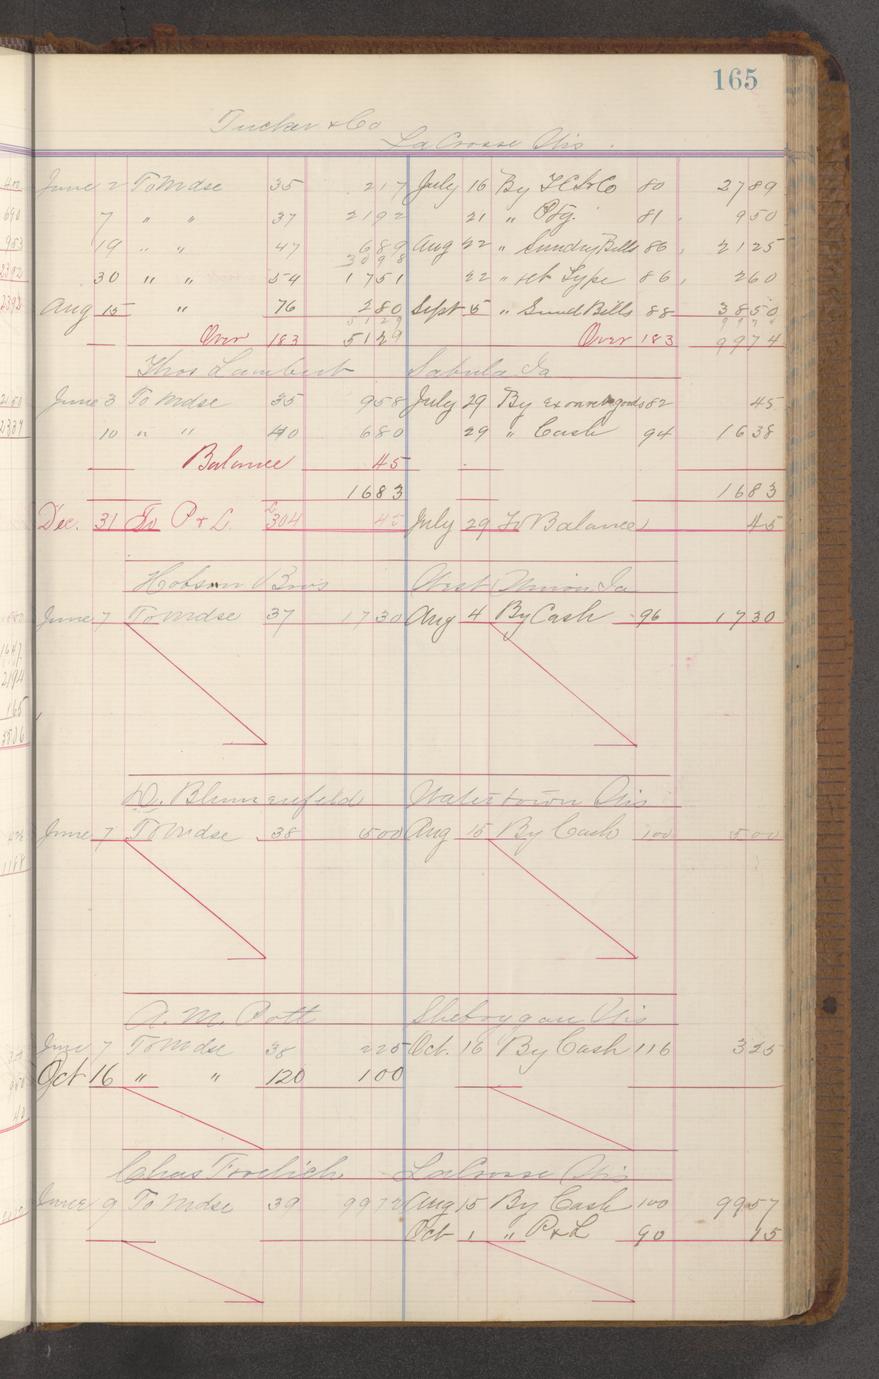 165
Tucker & Co LaCrosse Wis.
June 2 To Mdse 35 217 July 16 By T C & Co 80 2789
7 " " 37 2192 21 " Pfg. 81 950
19 " " 47 689 Aug 22 " Sundry Bills 86 2125
3098
30 " " 54 1751 22 " set Type 86 260
Aug 15 " 76 280 Sept 5 " Sund Bills 88 3850
5129 9974
Over 183 5129 Over 183 9974
Thos Lambert Sabula Ia
June 3 To Mdse 35 958 July 29 By goods 82 45
10 " " 40 680 29 " Cash 94 1638
Balance 45
1683 1683
Dec. 31 To P & L. 304 45 July 29 To Balance 45
Hobson Bros West Union Ia
June 7 To Mdse 37 1730 Aug 4 By Cash 96 1730
D. Blumenfeld Watertown Wis
June 7 To Mdse 38 500 Aug 15 By Cash 100 500
A. M. Pott Sheboygan Wis
June 7 To Mdse 38 225 Oct. 16 By Cash 116 325
Oct 16 " " 120 100
Chas Froelich LaCrosse Wis
June 9 To Mdse 39 9972 Aug 15 By Cash 100 9957
Oct 1 " P & L 90 15